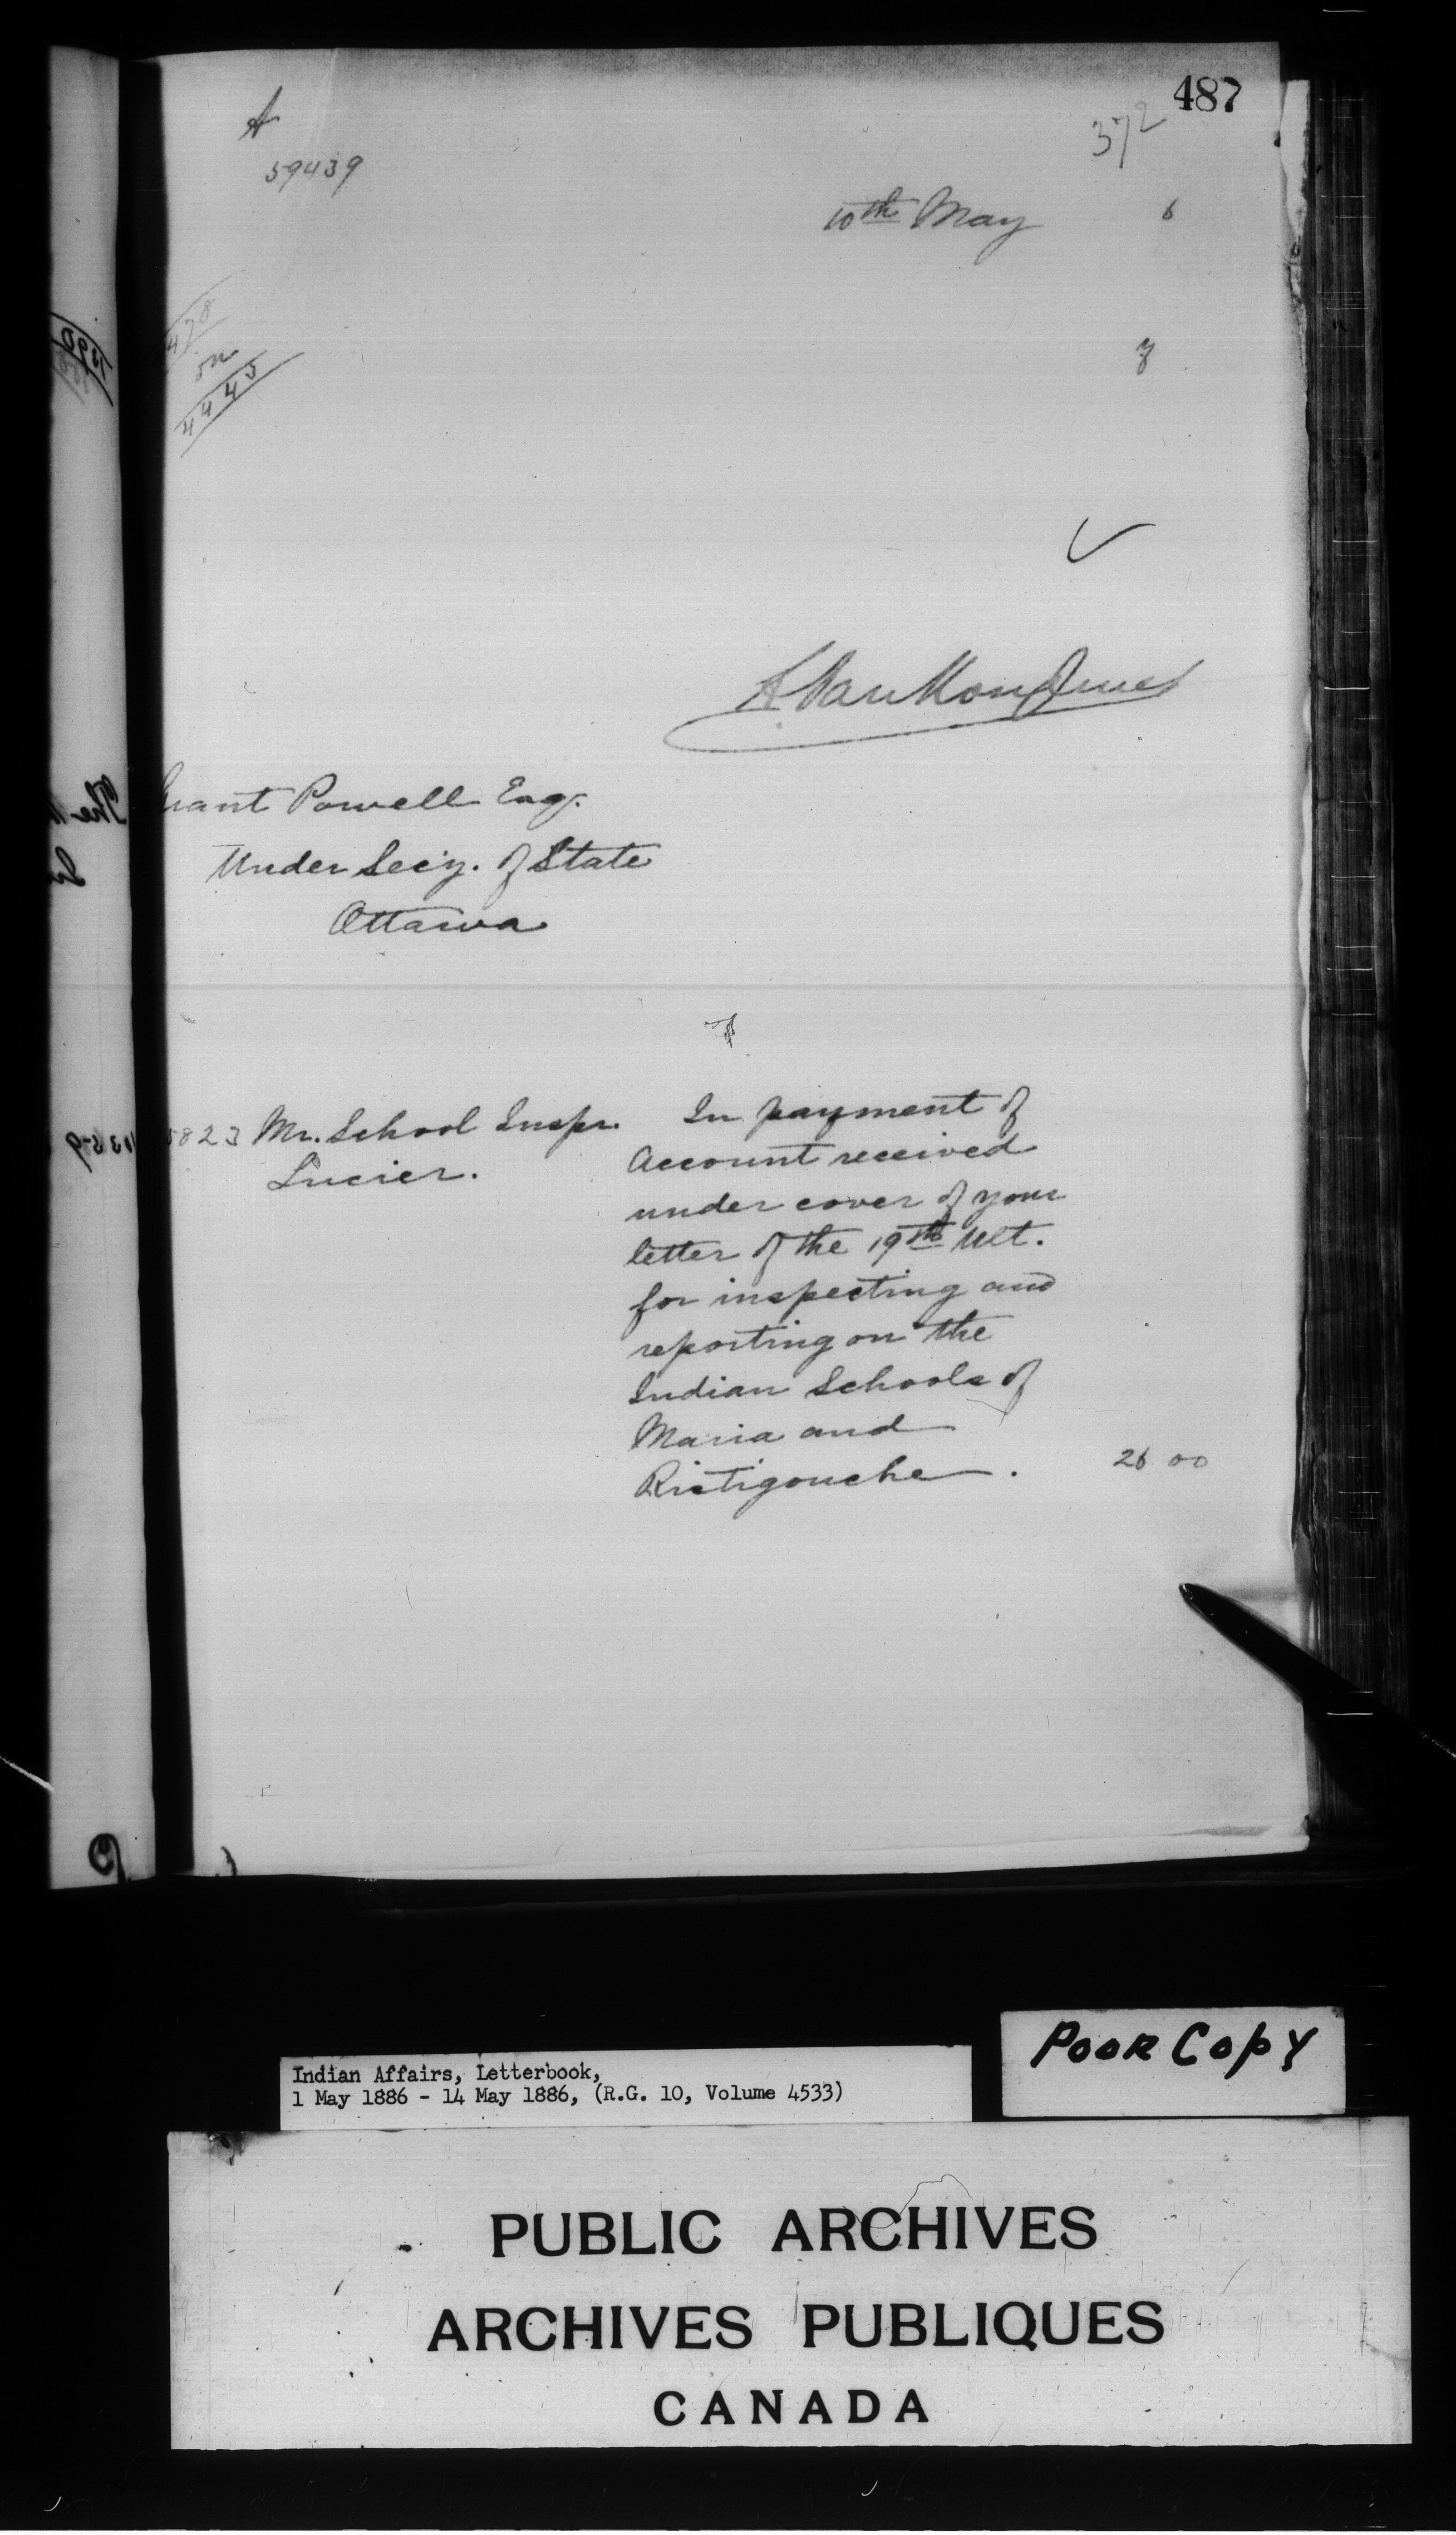 487
372
A
59439
10th May 6
478
on
4445
y
L VanKoughnet
Grant Powell Esq.
Under Secy. of State
Ottawa
5823 Mr. School Inspr.
Lucier.
In payment of
Account received
under cover of your
letter of the 19th Ult.
for inspecting and
reporting on the
Indian Schools of
Maria and
Ristigouche . 26 00
Poor Copy
Indian Affairs, Letterbook,
1 May 1886 - 14 May 1886, (R.G. 10, Volume 4533)
PUBLIC ARCHIVES
ARCHIVES PUBLIQUES
CANADA